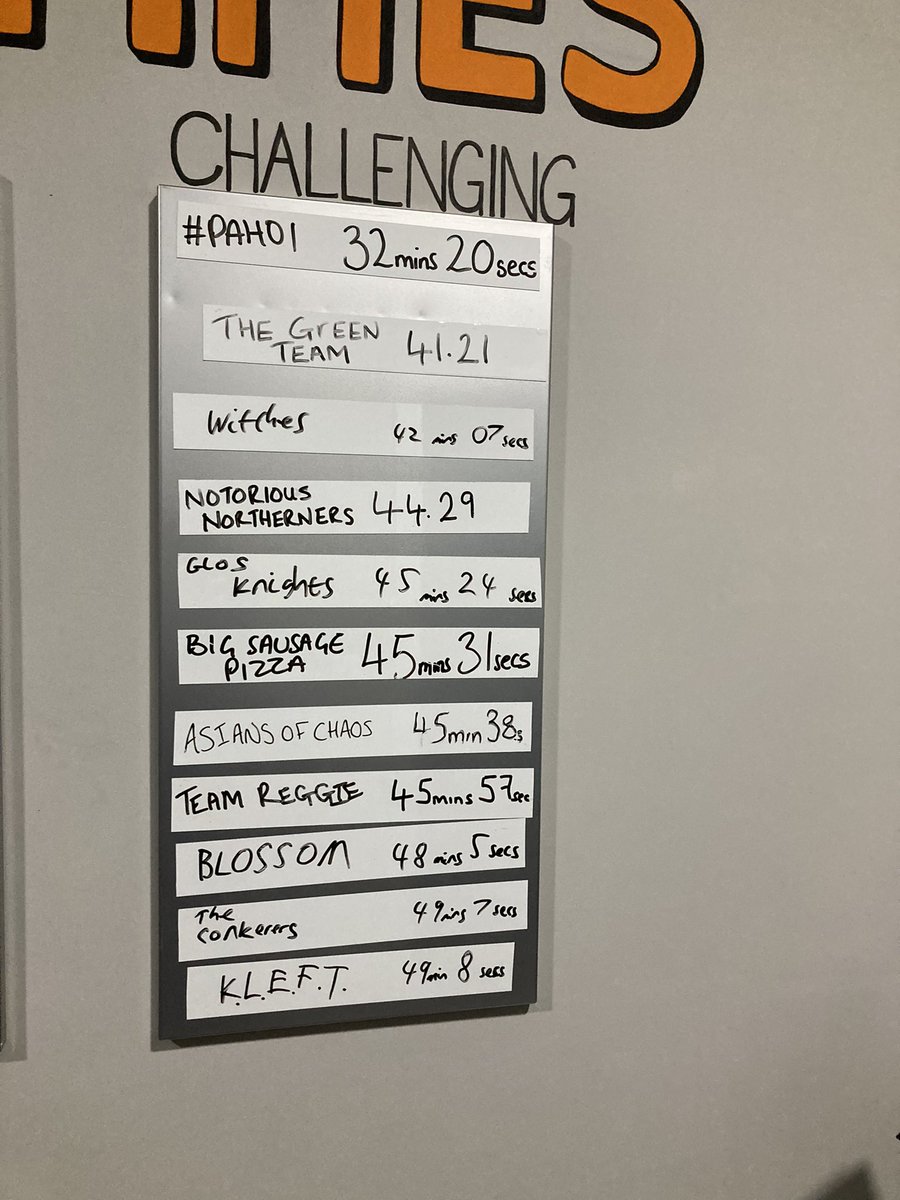 CHALLENGING
#PAHO1 32mins 20secs
THE GrEEN
TEAM 41.21
Witches 42 mins 07secs
NOTORIOUS
NORTHERNERS 44.29
GLOS
Knights 45 mins 24 secs
BIG SAUSAGE
PIZZA 45mins 31secs
ASIANS OF CHAOS 45min 38s
TEAM REGGIE 45mins 57sec
BLOSSOM 48 mins 5 secs
The
Conkerers 49mins 7 secs
K.L.E.F.T. 49min 8 secs